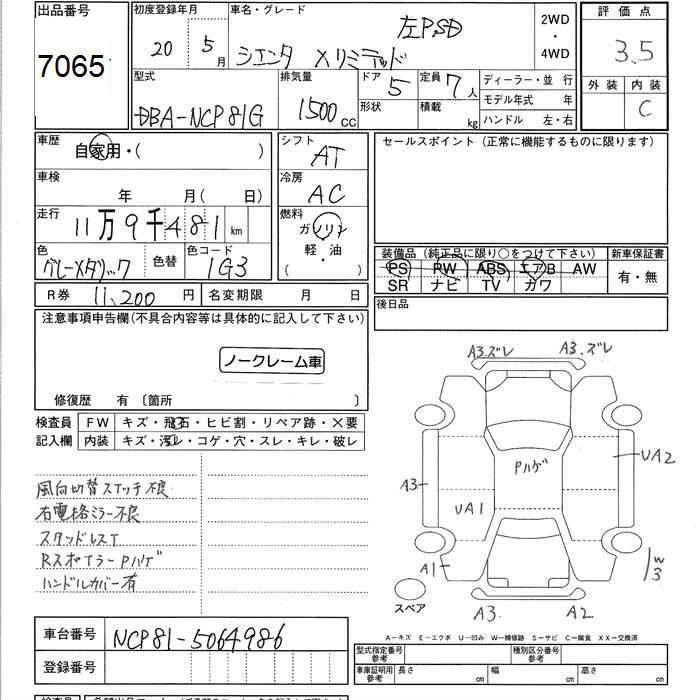 出品番号
7065
初度登録年月
20 5月
車名・グレード
シエンタ Xリミテッド
左P.SD
2WD
・
4WD
評価点
3.5
外装 内装
C
型式
DBA-NCP81G
排気量
1500cc
ドア 5
形状
定員 7人
積載 kg
ディーラー・並行
モデル年式 年
ハンドル 左・右
車歴
自家用・( )
車検
年 月( 日)
走行
11万9千481km
色
グレーメタリック
色替
色コード
1G3
シフト
AT
冷房
AC
燃料
ガソリン
軽・油
( )
セールスポイント(正常に機能するものに限ります)
装備品(純正品に限り○をつけて下さい)
PS PW ABS エアB AW
SR ナビ TV カワ
新車保証書
有・無
R券 11,200円
名変期限 月 日
後日品
注意事項申告欄(不具合内容等は具体的に記入して下さい)
ノークレーム車
修復歴 有〔箇所 〕
検査員
記入欄
FW キズ・飛石・ヒビ割・リペア跡・X要
内装 キズ・汚レ・コゲ・穴・スレ・キレ・破レ
風向切替スイッチ不良
右電格ミラー不良
スタッドレスT
RスポイラーPハゲ
ハンドルカバー有
A3.ズレ A3.ズレ
Pハゲ
UA2
A3
UA1
A1
W3
スペア
A3 A2
A−キズ E−エクボ U−凹み W−補修跡 S−サビ C−腐食 XX−交換済
車台番号
NCP81-5064986
登録番号
型式指定番号
参考
種別区分番号
参考
車庫証明用
参考
長さ cm 幅 cm 高さ cm